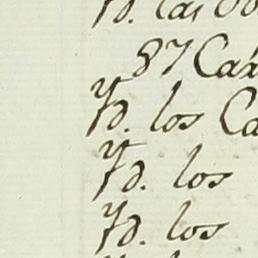 Yd. las
87 Ca
Yd. los Ca
Yd. los
Yd. los